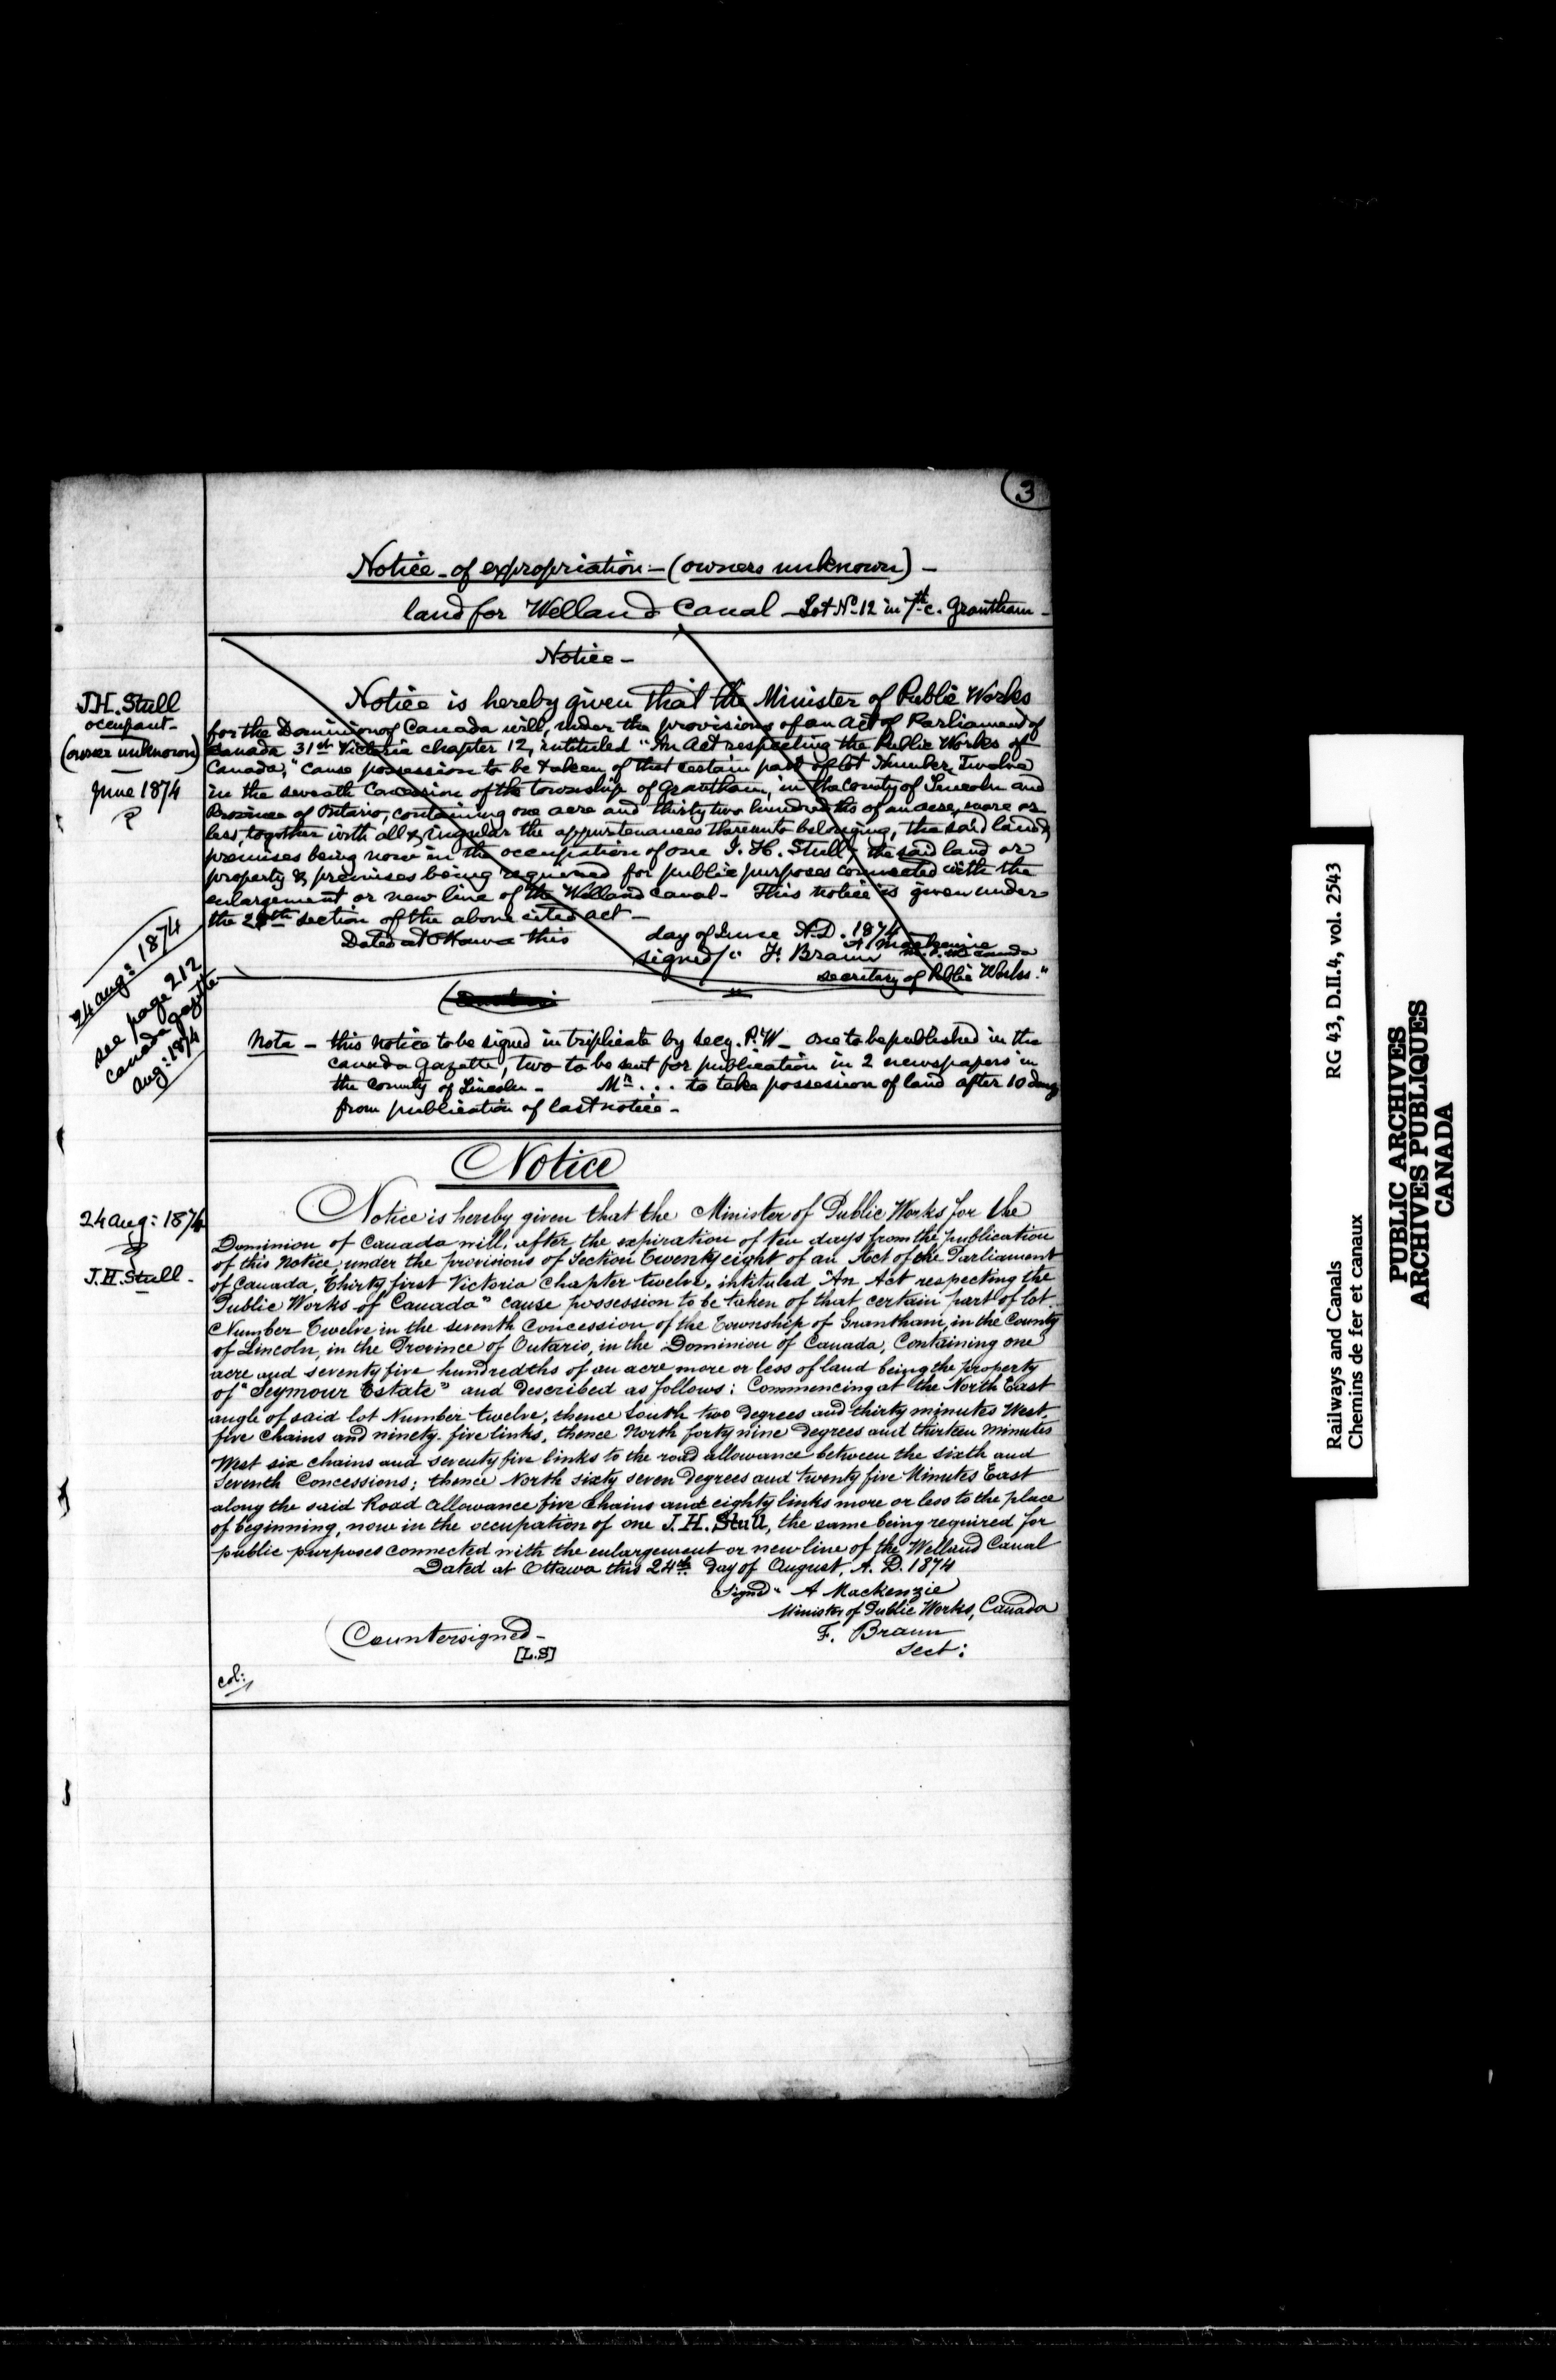 3
Notice - of expropriation - (owners unknown) -
land for Welland Canal - Lot No. 12 in 7th c. Grantham -
Notice -
J.H. Stull
occupant -
(owner unknown)
June 1874
Notice is hereby given that the Minister of Public Works
for the Dominion of Canada will, under the provisions of an Act of Parliament of
Canada 31st Victoria chapter 12, intituled "An Act respecting the Public Works of
Canada," cause possession to be taken of that certain part of lot Number Twelve
in the seventh Concession of the township of Grantham, in the County of Lincoln and
Province of Ontario, containing one acre and thirty two hundredths of an acre, more or
less, together with all & singular the appurtenances thereunto belonging, the said land &
premises being now in the occupation of one J. H. Stull, the said land or
property & premises being required for public purposes connected with the
enlargement or new line of the Welland Canal - This notice is given under
the 28th section of the above cited act -
Dated at Ottawa this day of June A.D. 1874
A Mackenzie
signed/" F. Braun
secretary of Public Works."
24 aug: 1874
see page 212
Canada gazette
Aug: 1874
Nota - this notice to be signed in triplicate by Secy. P.W - One to be published in the
Canada Gazette, two to be sent for publication in 2 newspapers in
the County of Lincoln - Mr. . . . to take possession of land after 10 days
from publication of last notice -
Notice
24 aug: 1874
J.H. Stull -
Notice is hereby given that the Minister of Public Works for the
Dominion of Canada will, after the expiration of ten days from the publication
of this Notice, under the provisions of Section Twenty eight of an Act of the Parliament
of Canada, Thirty first Victoria Chapter twelve, intituled "An Act respecting the
Public Works of Canada" cause possession to be taken of that certain part of lot
Number Twelve in the seventh Concession of the Township of Grantham, in the County
of Lincoln, in the Province of Ontario, in the Dominion of Canada, Containing one
acre and seventy five hundredths of an acre more or less of land being the property
of "Seymour Estate" and described as follows: Commencing at the North East
angle of said lot Number twelve, thence South two degrees and thirty minutes West,
five Chains and ninety-five links, thence North forty nine degrees and thirteen minutes
West six chains and seventy five links to the road allowance between the sixth and
Seventh Concessions; thence North sixty seven degrees and twenty five Minutes East
along the said Road Allowance five Chains and eighty links more or less to the place
of beginning, now in the occupation of one J.H. Stull, the same being required for
public purposes connected with the enlargement or new line of the Welland Canal
Dated at Ottawa this 24th day of August, A. D. 1874
Signd " A Mackenzie
Minister of Public Works, Canada
(Countersigned - F. Braun
[L.S] Sect:
col:
RG 43, D.II.4, vol. 2543
Railways and Canals
Chemins de fer et canaux
PUBLIC ARCHIVES
ARCHIVES PUBLIQUES
CANADA